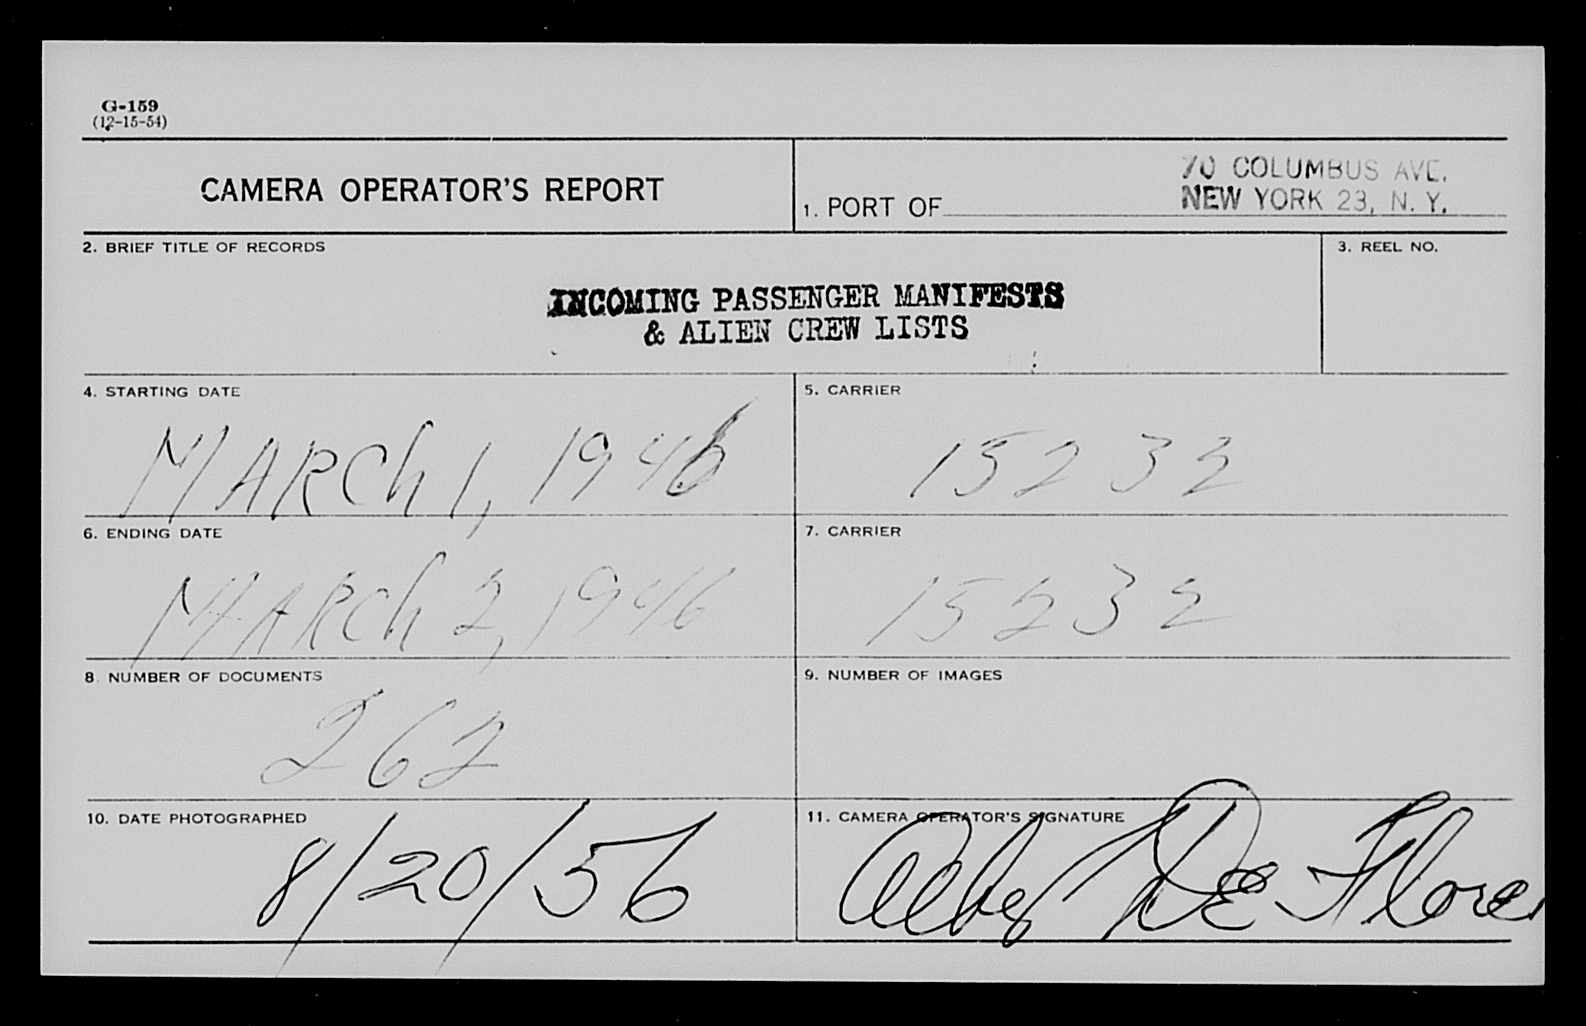 G-159
(12-15-54)
CAMERA OPERATOR'S REPORT
1. PORT OF
70 COLUMBUS AVE.
NEW YORK 23, N. Y.
2. BRIEF TITLE OF RECORDS
INCOMING PASSENGER MANIFESTS
& ALIEN CREW LISTS
3. REEL NO.
4. STARTING DATE
MARCh 1, 1946
5. CARRIER
15232
6. ENDING DATE
MARCh 2, 1946
7. CARRIER
15232
8. NUMBER OF DOCUMENTS
262
9. NUMBER OF IMAGES
10. DATE PHOTOGRAPHED
8/20/56
11. CAMERA OPERATOR'S SIGNATURE
De Flore